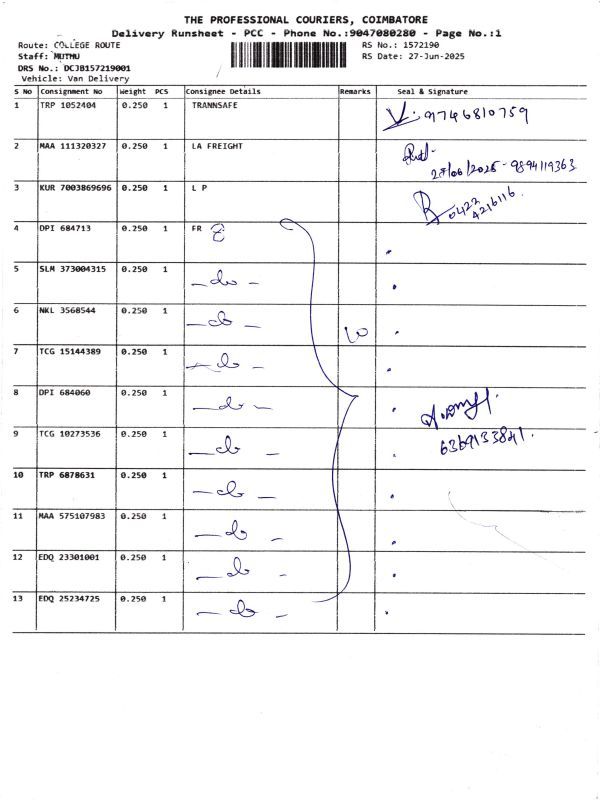 THE PROFESSIONAL COURIERS, COIMBATORE
Delivery Runsheet - PCC - Phone No.:9047080280 - Page No.:1
Route: COLLEGE ROUTE RS No.: 1572190
Staff: MUTHU RS Date: 27-Jun-2025
DRS No.: DCJB157219001
Vehicle: Van Delivery
S No Consignment No Weight PCS Consignee Details Remarks Seal & Signature
1 TRP 1052404 0.250 1 TRANNSAFE 9746810759
2 MAA 111320327 0.250 1 LA FREIGHT
27/06/2025 - 9894119363
3 KUR 7003869696 0.250 1 L P 0422
4216116
4 DPI 684713 0.250 1 FR
5 SLM 373004315 0.250 1 - do -
6 NKL 3568544 0.250 1 - do - 10
7 TCG 15144389 0.250 1 - do -
8 DPI 684060 0.250 1 - do -
9 TCG 10273536 0.250 1 - do - 6369133841.
10 TRP 6878631 0.250 1 - do -
11 MAA 575107983 0.250 1 - do -
12 EDQ 23301001 0.250 1 - do -
13 EDQ 25234725 0.250 1 - do -